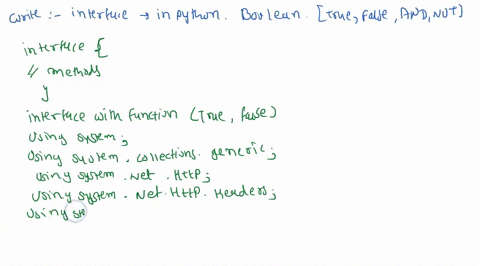 write :- interface → in python. Boolean. [True, False, AND, NOT]
interface {
// methods
}
interface with function (True, false)
Using system;
Using system. collections. generic;
using system. Net. HTTP;
using system. Net. HTTP. Headers;
using